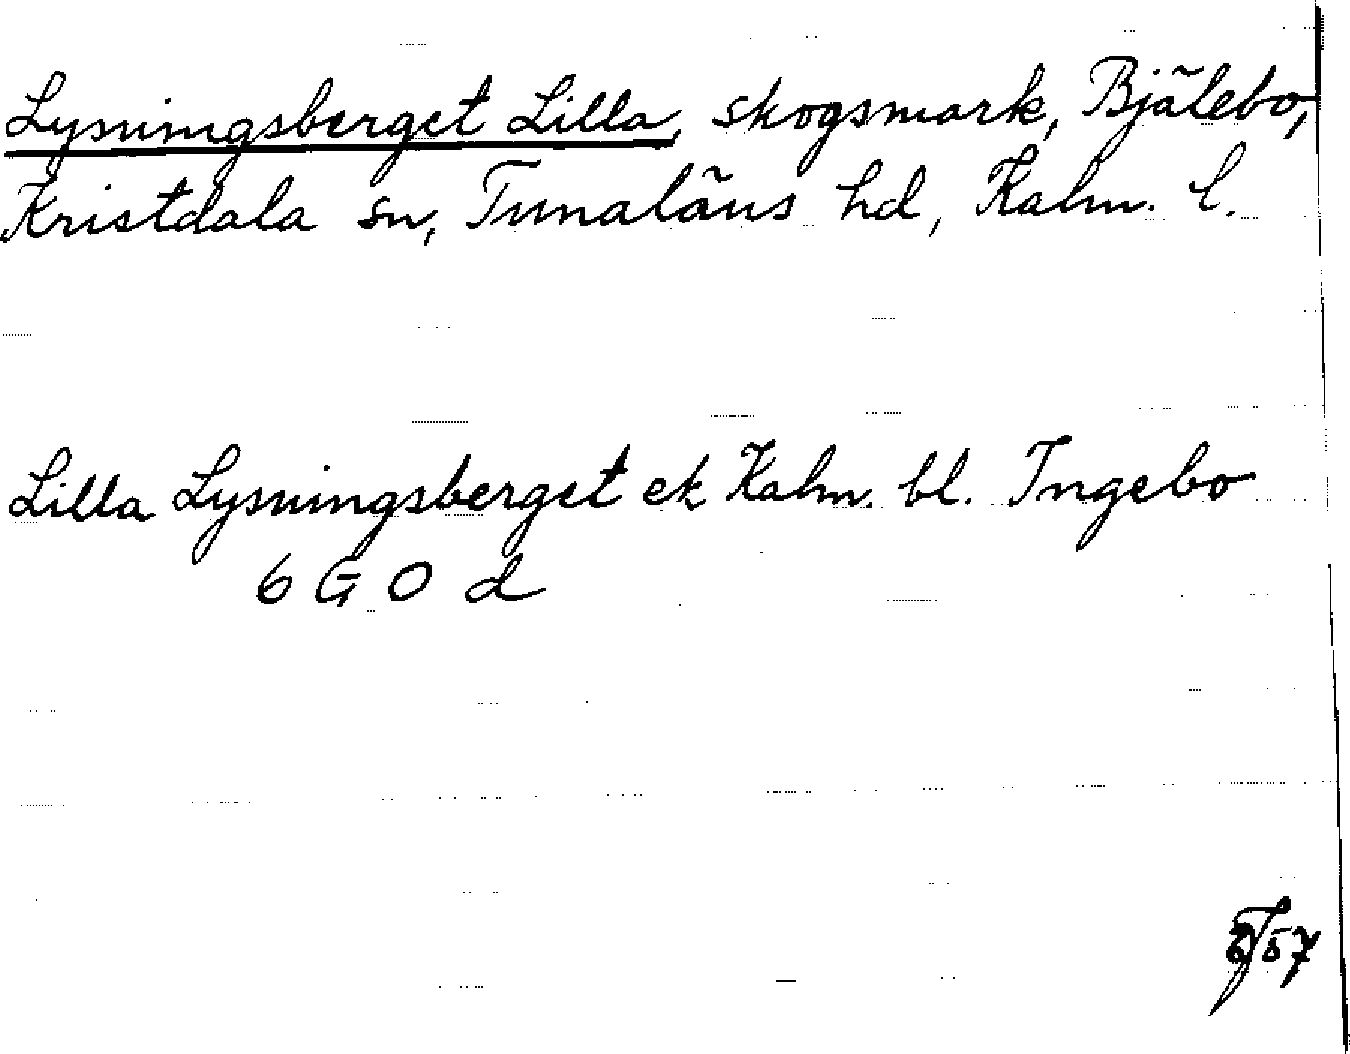 Lysningsberget Lilla, skogsmark, Bjälebo,
Kristdala sn, Tunaläns hd, Kalm. l.
Lilla Lysningsberget ek Kalm. bl. Ingebo
6 G 0 d